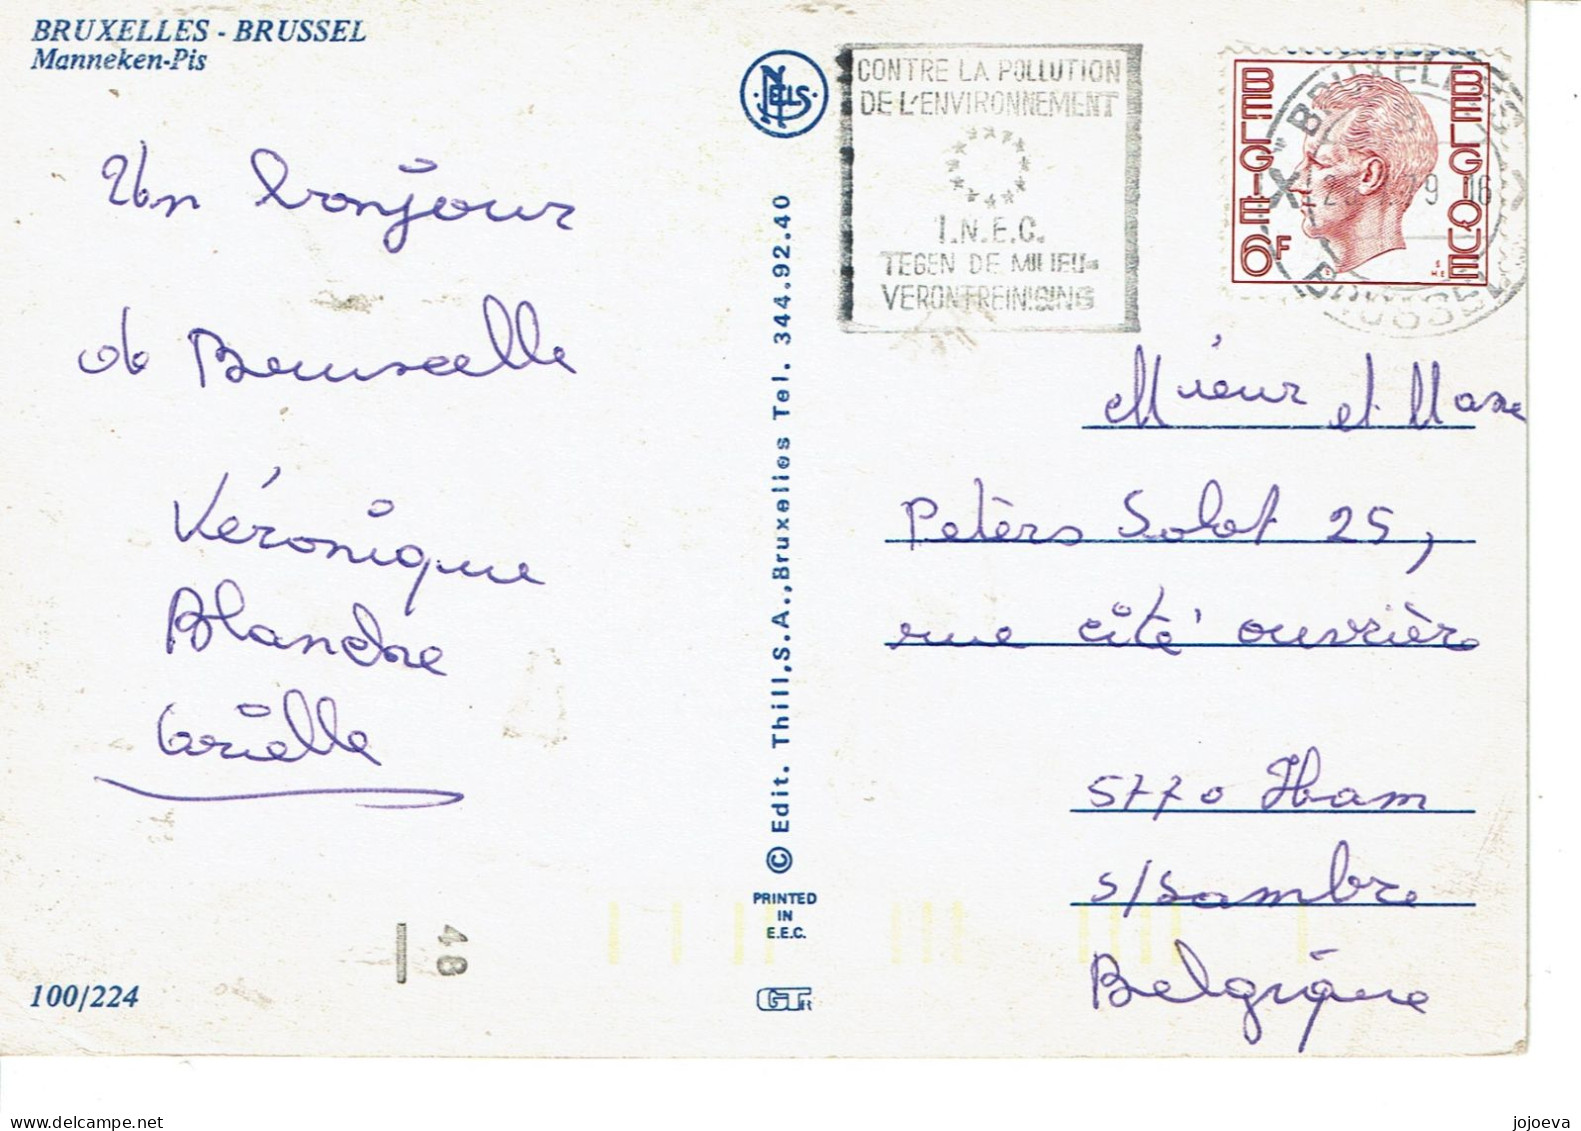 BRUXELLES - BRUSSEL
Manneken-Pis
Un bonjour
de Bruxelle
Véronique
Blanche
Arielle
100/224
48
NELS
© Edit. Thill, S.A., Bruxelles Tel. 344.92.40
PRINTED
IN
E.E.C.
CONTRE LA POLLUTION
DE L'ENVIRONNEMENT
I.N.E.C.
TEGEN DE MILIEU-
VERONTREINIGING
BELGIE 6F
BELGIQUE
BRUXELLES
79 16
BRUSSEL
Mieur et Mame
Peters Solot 25,
rue cité ouvrière
5770 Ham
s/Sambre
Belgique
jojoeva